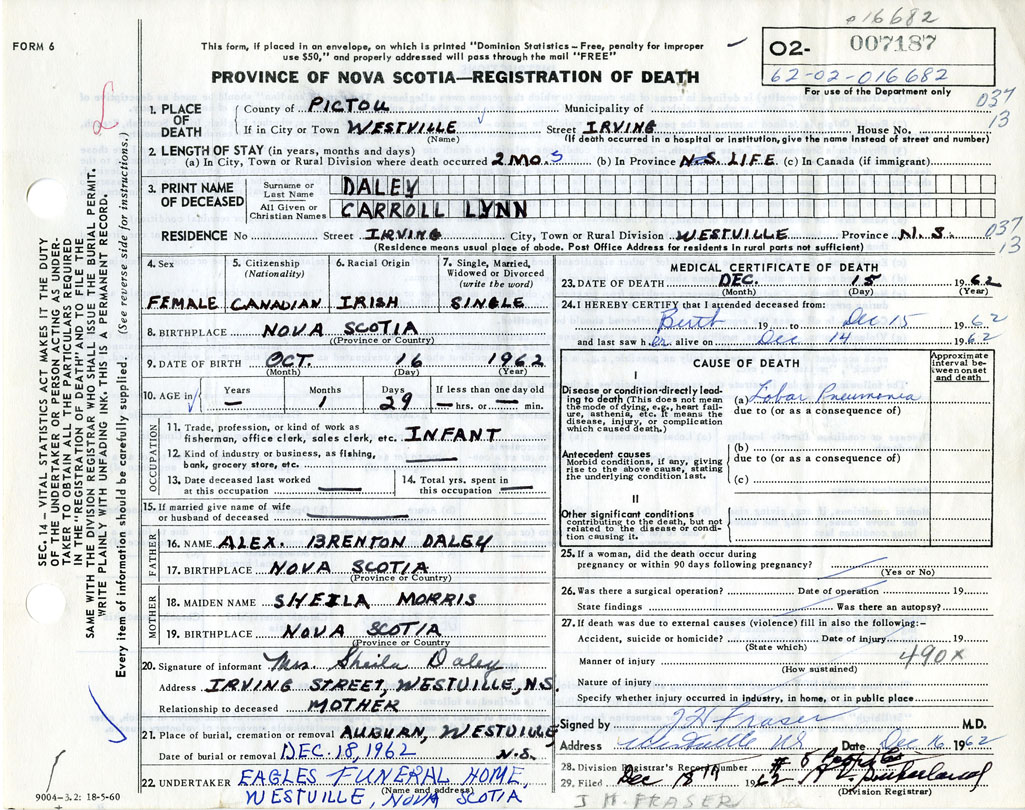 016682
FORM 6
This form, if placed in an envelope, on which is printed "Dominion Statistics – Free, penalty for improper
use $50," and properly addressed will pass through the mail "FREE"
O2- 007187
62-02-016682
For use of the Department only
PROVINCE OF NOVA SCOTIA—REGISTRATION OF DEATH
037
13
1. PLACE OF DEATH
County of PICTOU Municipality of
If in City or Town WESTVILLE Street IRVING House No.
(Name) (If death occurred in a hospital or institution, give the name instead of street and number)
2. LENGTH OF STAY (in years, months and days)
(a) In City, Town or Rural Division where death occurred 2 MO.S (b) In Province N.S. LIFE. (c) In Canada (if immigrant)
3. PRINT NAME OF DECEASED
Surname or Last Name DALEY
All Given or Christian Names CARROLL LYNN
RESIDENCE No Street IRVING City, Town or Rural Division WESTVILLE Province N.S.
037
13
(Residence means usual place of abode. Post Office Address for residents in rural parts not sufficient)
4. Sex
FEMALE
5. Citizenship
(Nationality)
CANADIAN
6. Racial Origin
IRISH
7. Single, Married,
Widowed or Divorced
(write the word)
SINGLE
8. BIRTHPLACE NOVA SCOTIA
(Province or Country)
9. DATE OF BIRTH OCT. 16 1962
(Month) (Day) (Year)
10. AGE in
Years Months Days If less than one day old
— 1 29 — hrs. or — min.
OCCUPATION
11. Trade, profession, or kind of work as
fisherman, office clerk, sales clerk, etc. INFANT
12. Kind of industry or business, as fishing,
bank, grocery store, etc.
13. Date deceased last worked
at this occupation
14. Total yrs. spent in
this occupation
15. If married give name of wife
or husband of deceased
FATHER
16. NAME ALEX. BRENTON DALEY
17. BIRTHPLACE NOVA SCOTIA
(Province or Country)
MOTHER
18. MAIDEN NAME SHEILA MORRIS
19. BIRTHPLACE NOVA SCOTIA
(Province or Country)
20. Signature of informant Mrs. Sheila Daley
Address IRVING STREET, WESTVILLE, N.S.
Relationship to deceased MOTHER
21. Place of burial, cremation or removal AUBURN, WESTVILLE
Date of burial or removal DEC. 18, 1962 N.S.
22. UNDERTAKER EAGLES FUNERAL HOME,
(Name and address)
WESTVILLE, NOVA SCOTIA
MEDICAL CERTIFICATE OF DEATH
23. DATE OF DEATH DEC. 15 1962
(Month) (Day) (Year)
24. I HEREBY CERTIFY that I attended deceased from:
Birth 19 to Dec 15 1962
and last saw her alive on Dec 14 1962
CAUSE OF DEATH
Approximate interval between onset and death
I
Disease or condition directly leading to death (This does not mean the mode of dying, e.g., heart failure, asthenia, etc. It means the disease, injury, or complication which caused death.)
(a) Lobar Pneumonia
due to (or as a consequence of)
Antecedent causes
Morbid conditions, if any, giving rise to the above cause, stating the underlying condition last.
(b)
due to (or as a consequence of)
(c)
II
Other significant conditions
contributing to the death, but not related to the disease or condition causing it.
25. If a woman, did the death occur during
pregnancy or within 90 days following pregnancy?
(Yes or No)
26. Was there a surgical operation? Date of operation 19
State findings Was there an autopsy?
27. If death was due to external causes (violence) fill in also the following:–
Accident, suicide or homicide? Date of injury 19
(State which)
Manner of injury 490X
(How sustained)
Nature of injury
Specify whether injury occurred in industry, in home, or in public place
Signed by J H Fraser M.D.
Address Westville NS Date Dec 16 1962
28. Division Registrar's Record Number # 6
29. Filed Dec 18th 1962 Sutherland
(Division Registrar)
J. H. FRASER
SEC. 14 – VITAL STATISTICS ACT MAKES IT THE DUTY
OF THE UNDERTAKER OR PERSON ACTING AS UNDER-
TAKER TO OBTAIN ALL THE PARTICULARS REQUIRED
IN THE "REGISTRATION OF DEATH" AND TO FILE THE
SAME WITH THE DIVISION REGISTRAR WHO SHALL ISSUE THE BURIAL PERMIT.
WRITE PLAINLY WITH UNFADING INK. THIS IS A PERMANENT RECORD.
Every item of information should be carefully supplied. (See reverse side for instructions.)
9004-3.2: 18-5-60